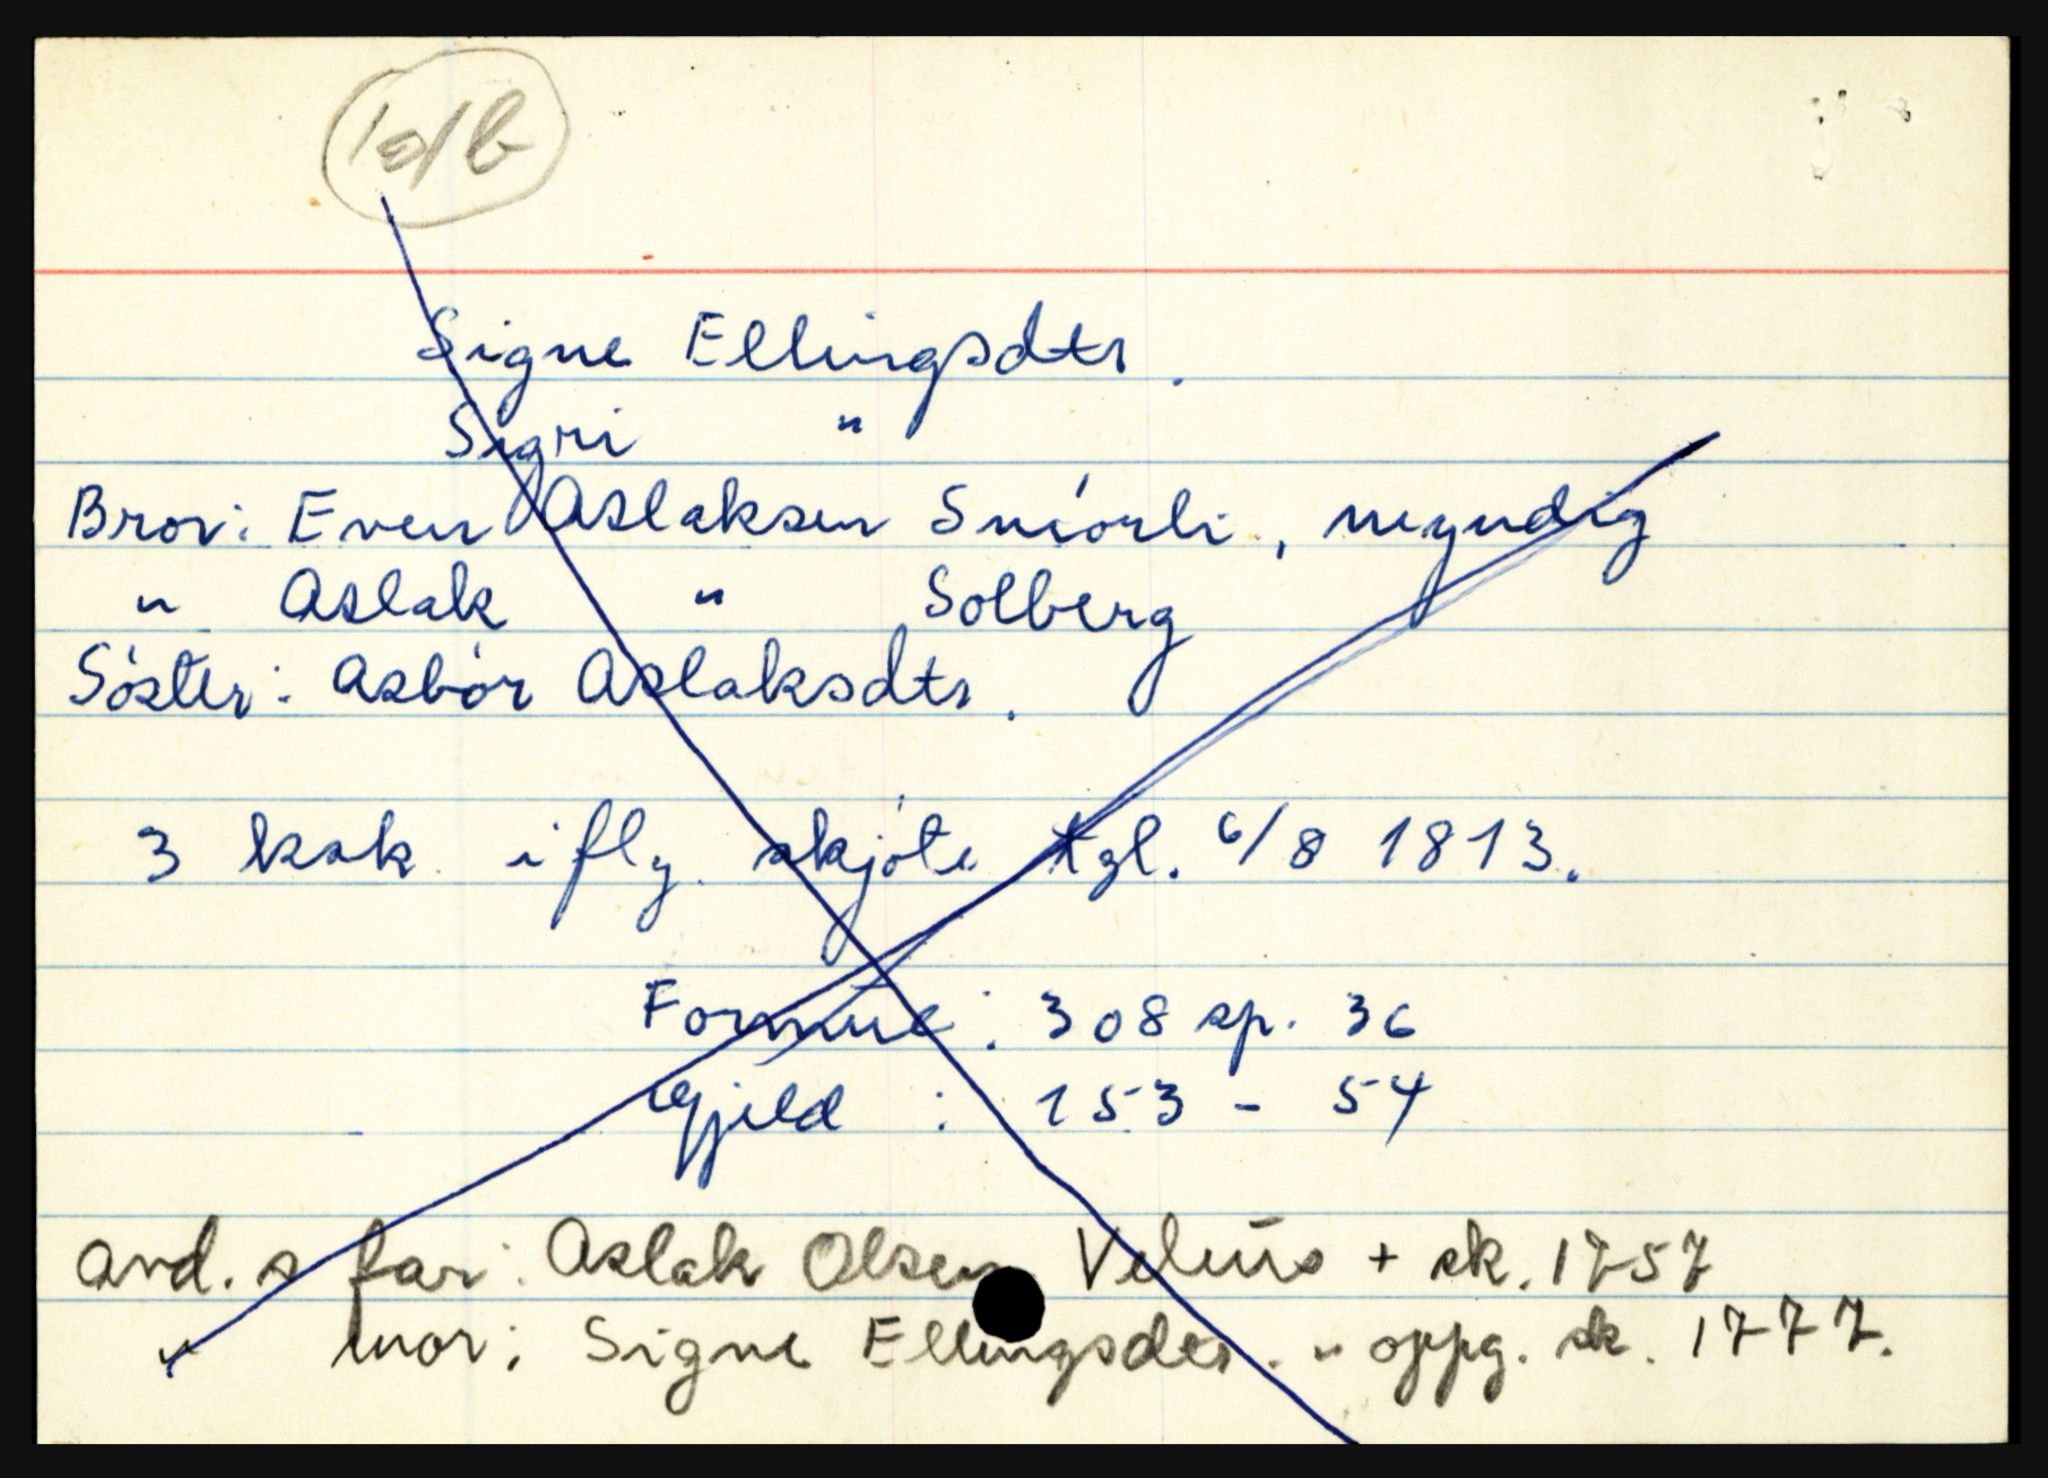 Signe Ellingsdtr.
Sigri "
Bror: Even Aslaksen Sniorli, myndig
" Aslak " Solberg
Söster: Asbör Aslaksdtr.
3 ksk. iflg. skjöte tgl. 6/8 1813.
Formue: 308 sp. 36
Gjeld : 153 - 54
avd. s far: Aslak Olsen + sk. 1757
" mor: Signe Ellingsdtr. " oppg. sk. 1777.